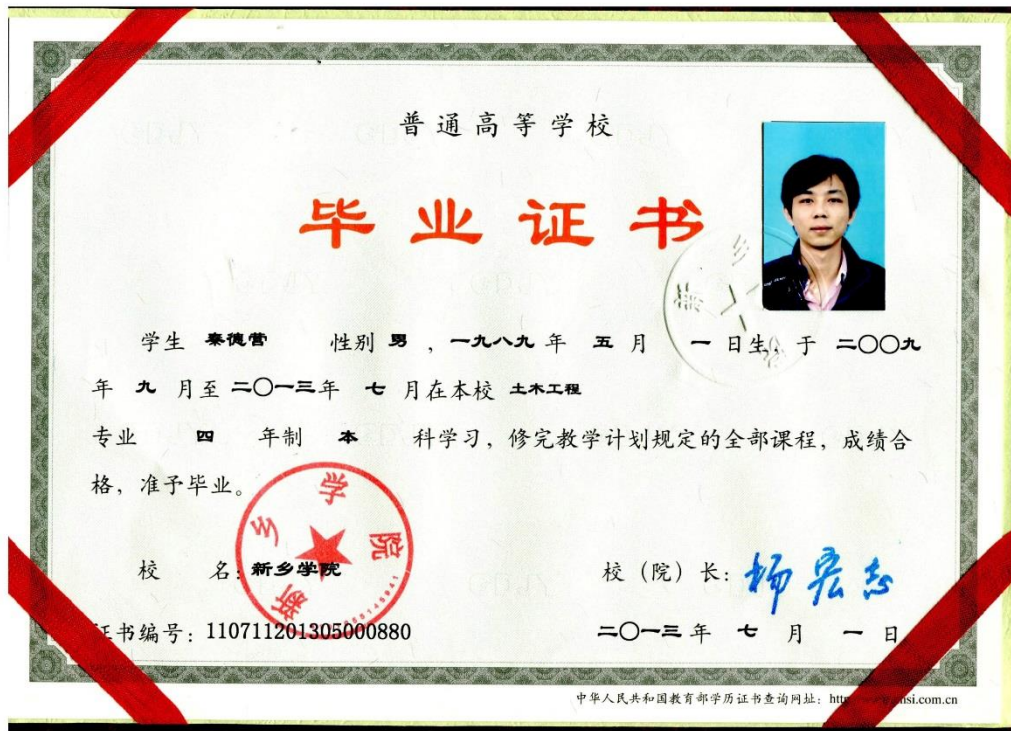 普通高等学校
毕业证书
学生 秦德营 性别 男 ，一九八九 年 五 月 一 日生，于 二〇〇九
年 九 月至 二〇一三年 七 月在本校 土木工程
专业 四 年制 本 科学习，修完教学计划规定的全部课程，成绩合
格，准予毕业。
新乡学院
校 名：新乡学院
校（院）长：杨宏志
证书编号：110711201305000880
二〇一三年 七 月 一 日
中华人民共和国教育部学历证书查询网址：